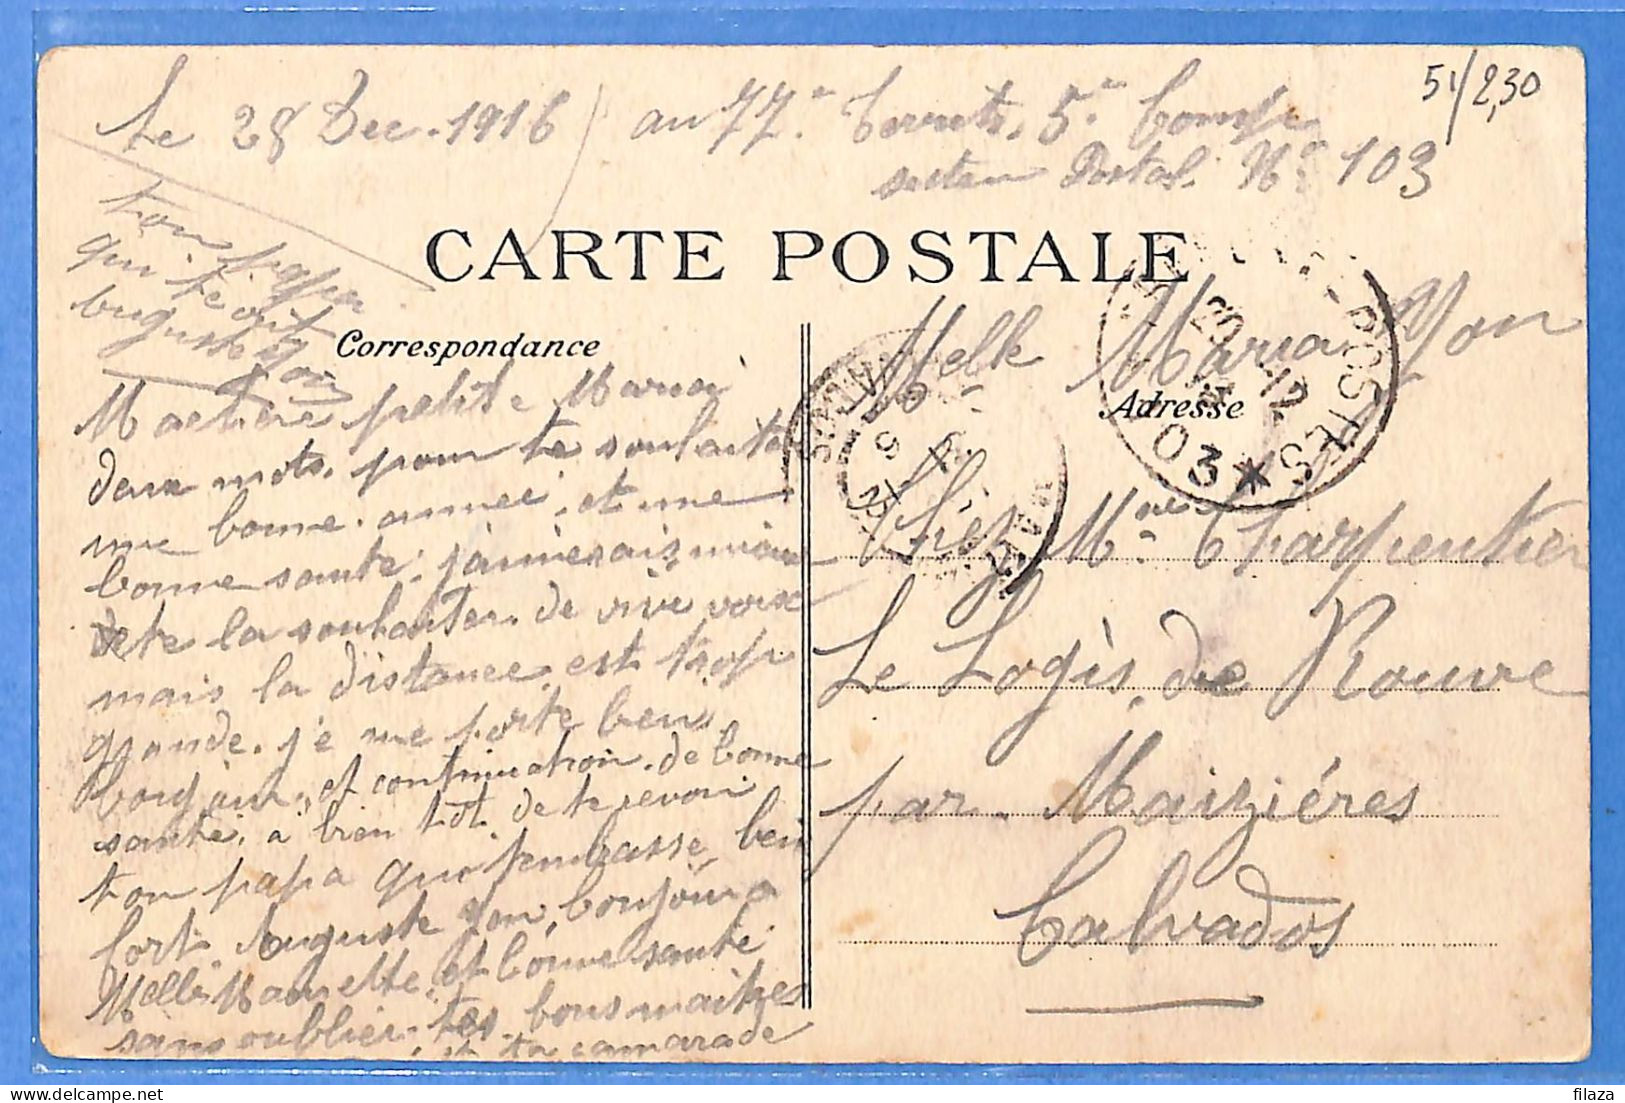 51/2,30
Le 28 Dec. 1916 au 77e Territ. 5e Comp
secteur Postal. No 103
ton papa
qui t'ecrit
auguste Yon
CARTE POSTALE
Correspondance
Ma chere petite Maria
deux mots. pour te souhaiter
une bonne. année. et une
bonne santé. j'aimerais mieux
te la souhaiter. de vive voix
mais la distance est trop
grande. je me porte bien
bonjour. et continuation. de bonne
santé. a bien tôt. de te revoir
ton papa qui t'embrasse bien
fort. Auguste Yon, bonjour a
Melle Mariette. et bonne santé
sans oublier. tes bons maitres
et ta camarade
Melle Maria Yon
Adresse
Chez Mme Charpentier
Le Logis. de Rouvre
par. Maiziéres
Calvados
POSTES
20 12
103 *
CALVADOS
filaza